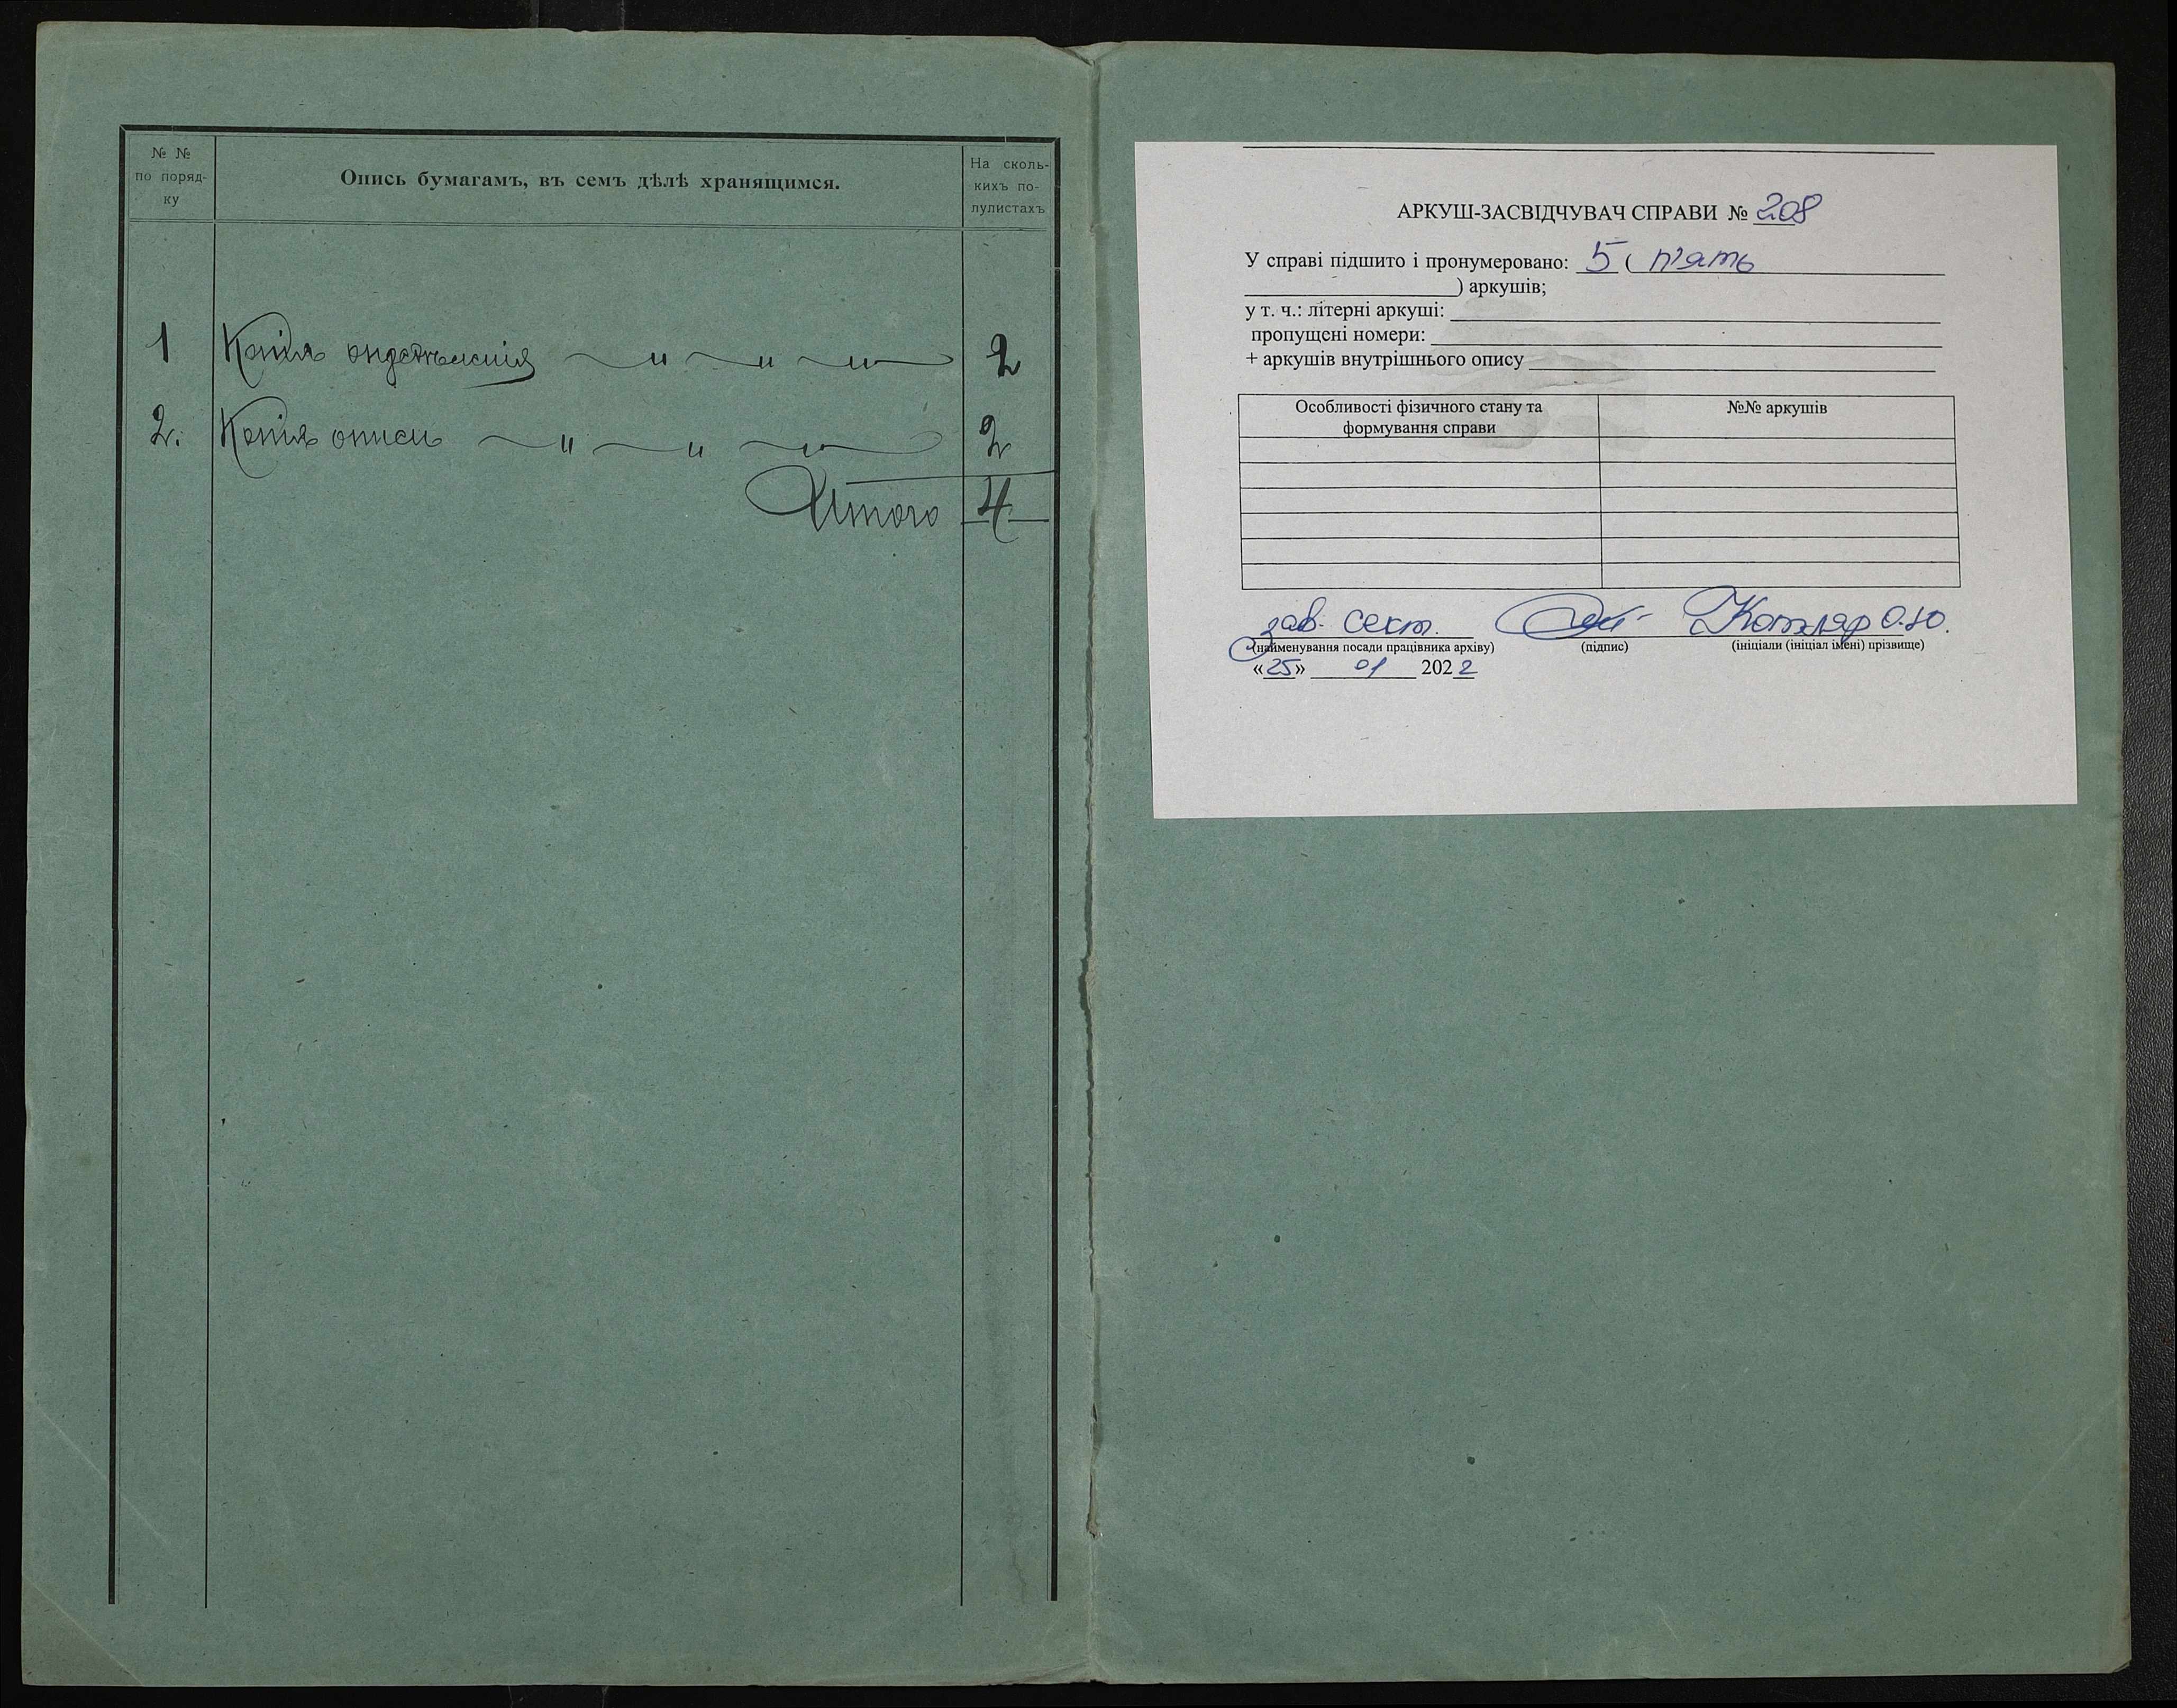 № №
по поряд-
ку
Опись бумагамъ, въ семъ дѣлѣ хранящимся.
На сколь-
кихъ по-
лулистахъ
1 Копія опредѣленія — „ — „ — „ — 2
2. Копія описи — „ — „ — „ — 2
Итого 4
АРКУШ-ЗАСВІДЧУВАЧ СПРАВИ № 208
У справі підшито і пронумеровано: 5 ( п'ять
) аркушів;
у т. ч.: літерні аркуші:
пропущені номери:
+ аркушів внутрішнього опису
Особливості фізичного стану та
формування справи
№№ аркушів
зав. сект. Котляр О.Ю.
(найменування посади працівника архіву) (підпис) (ініціали (ініціал імені) прізвище)
«25» 01 2022